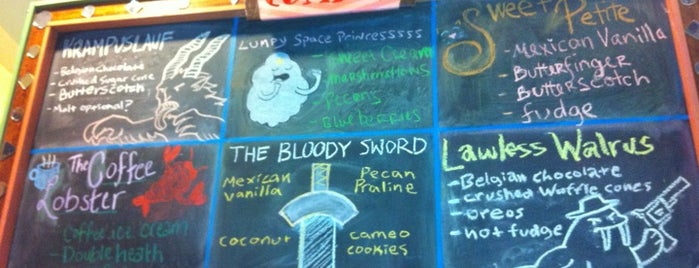 KRAMPUSLAUF
- Belgian chocolate
- crushed sugar cone
- Butterscotch
- Malt optional?
LUMPY Space Princessssss
- sweet cream
marshmallows
- Pecans
- Blueberries
Sweet Petite
- Mexican Vanilla
- Butterfinger
- Butterscotch
- fudge
The Coffee
Lobster
- Coffee ice cream
- Double heath
THE BLOODY SWORD
Mexican
vanilla
Pecan
Praline
coconut
cameo
cookies
Lawless Walrus
- Belgian chocolate
- crushed Waffle cones
- oreos
- hot fudge